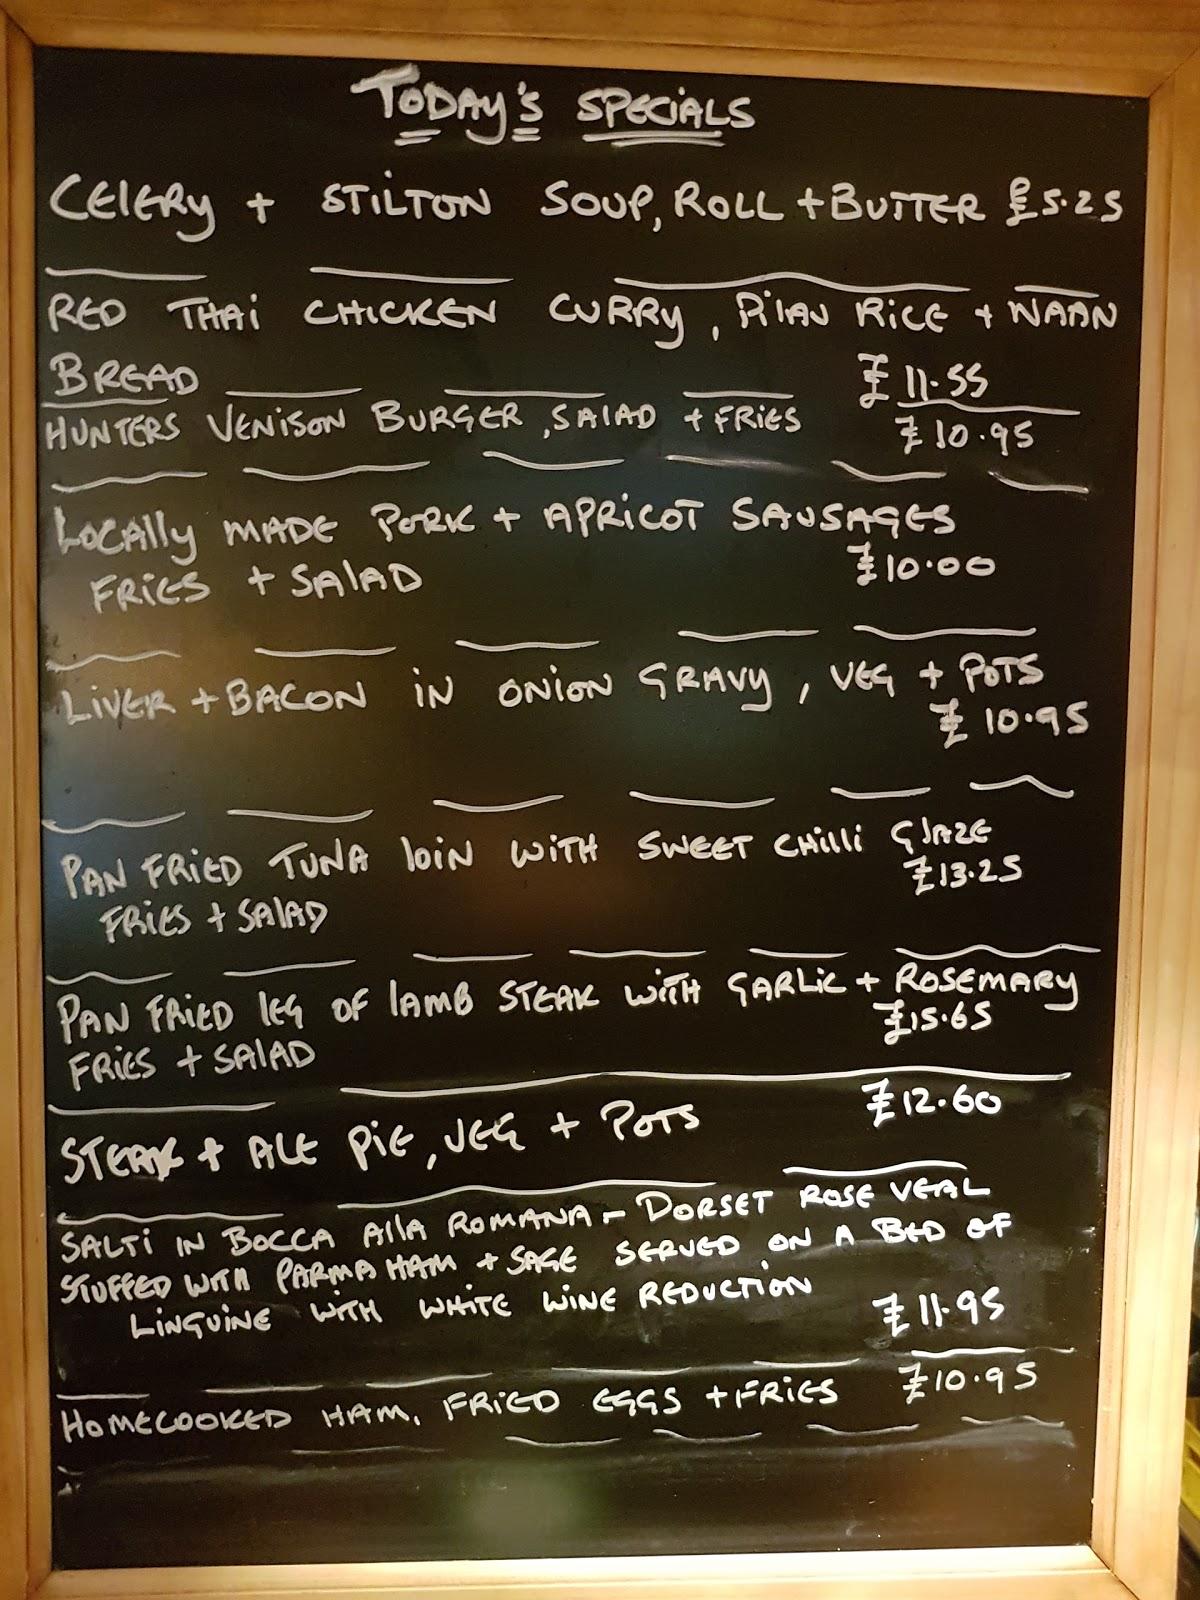 TODAY'S SPECIALS
CELERY + STILTON SOUP, ROLL + BUTTER £5.25
RED THAI CHICKEN CURRY, PILAU RICE + NAAN
BREAD £11.55
HUNTERS VENISON BURGER, SALAD + FRIES £10.95
LOCALLY MADE PORK + APRICOT SAUSAGES
FRIES + SALAD £10.00
LIVER + BACON IN ONION GRAVY, VEG + POTS
£10.95
PAN FRIED TUNA LOIN WITH SWEET CHILLI GLAZE
£13.25
FRIES + SALAD
PAN FRIED LEG OF LAMB STEAK WITH GARLIC + ROSEMARY
£15.65
FRIES + SALAD
STEAK + ALE PIE, VEG + POTS £12.60
SALTI IN BOCCA ALLA ROMANA - DORSET ROSE VEAL
STUFFED WITH PARMA HAM + SAGE SERVED ON A BED OF
LINGUINE WITH WHITE WINE REDUCTION £11.95
HOMECOOKED HAM, FRIED EGGS + FRIES £10.95